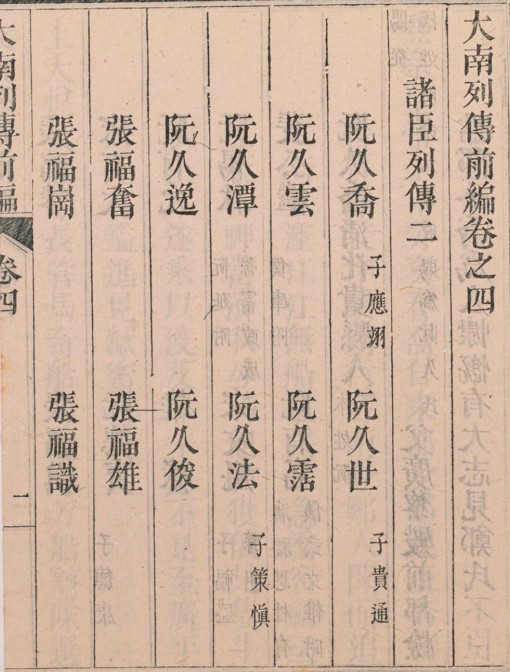 大南列傳前編卷之四
諸臣列傳二
阮久喬 子應翊 阮久世 子貴通
阮久雲 阮久霑
阮久潭 阮久法 子策慎
阮久逸 阮久俊
張福奮 張福雄
張福崗 張福識
大南列傳前編 卷四 一